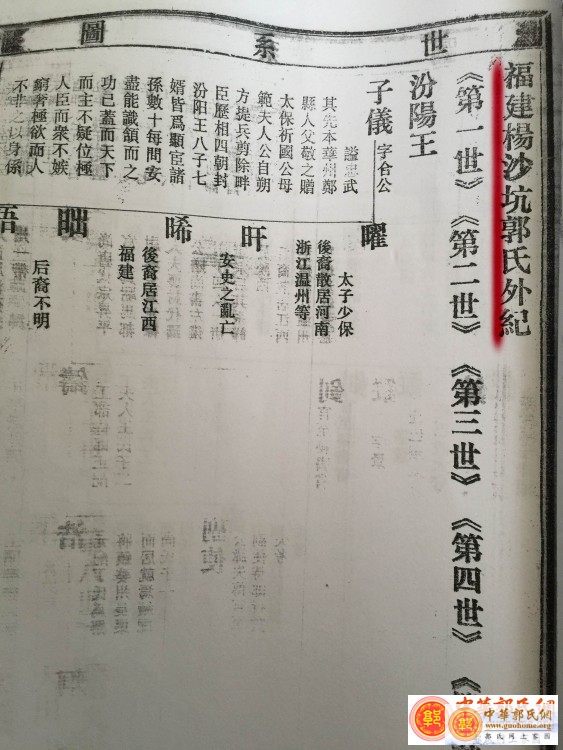 世系圖
福建楊沙坑郭氏外紀
《第一世》《第二世》《第三世》《第四世》《
汾陽王
子儀 字合公
謚忠武
其先本華州鄭
縣人父敬之贈
太保祈國公母
範夫人公自朔
方提兵剪除畔
臣歷相四朝封
汾阳王八子七
婿皆爲顯宦諸
孫數十每問安
盡能識頷而之
功已蓋而天下
而主不疑位極
人臣而衆不嫉
窮奢極欲而人
不非之以身係
曜
太子少保
後裔散居河南
浙江温州等
旰
安史之亂亡
晞
後裔居江西
福建
昢
后裔不明
中華郭氏網
www.guohome.org
郭氏网上家园